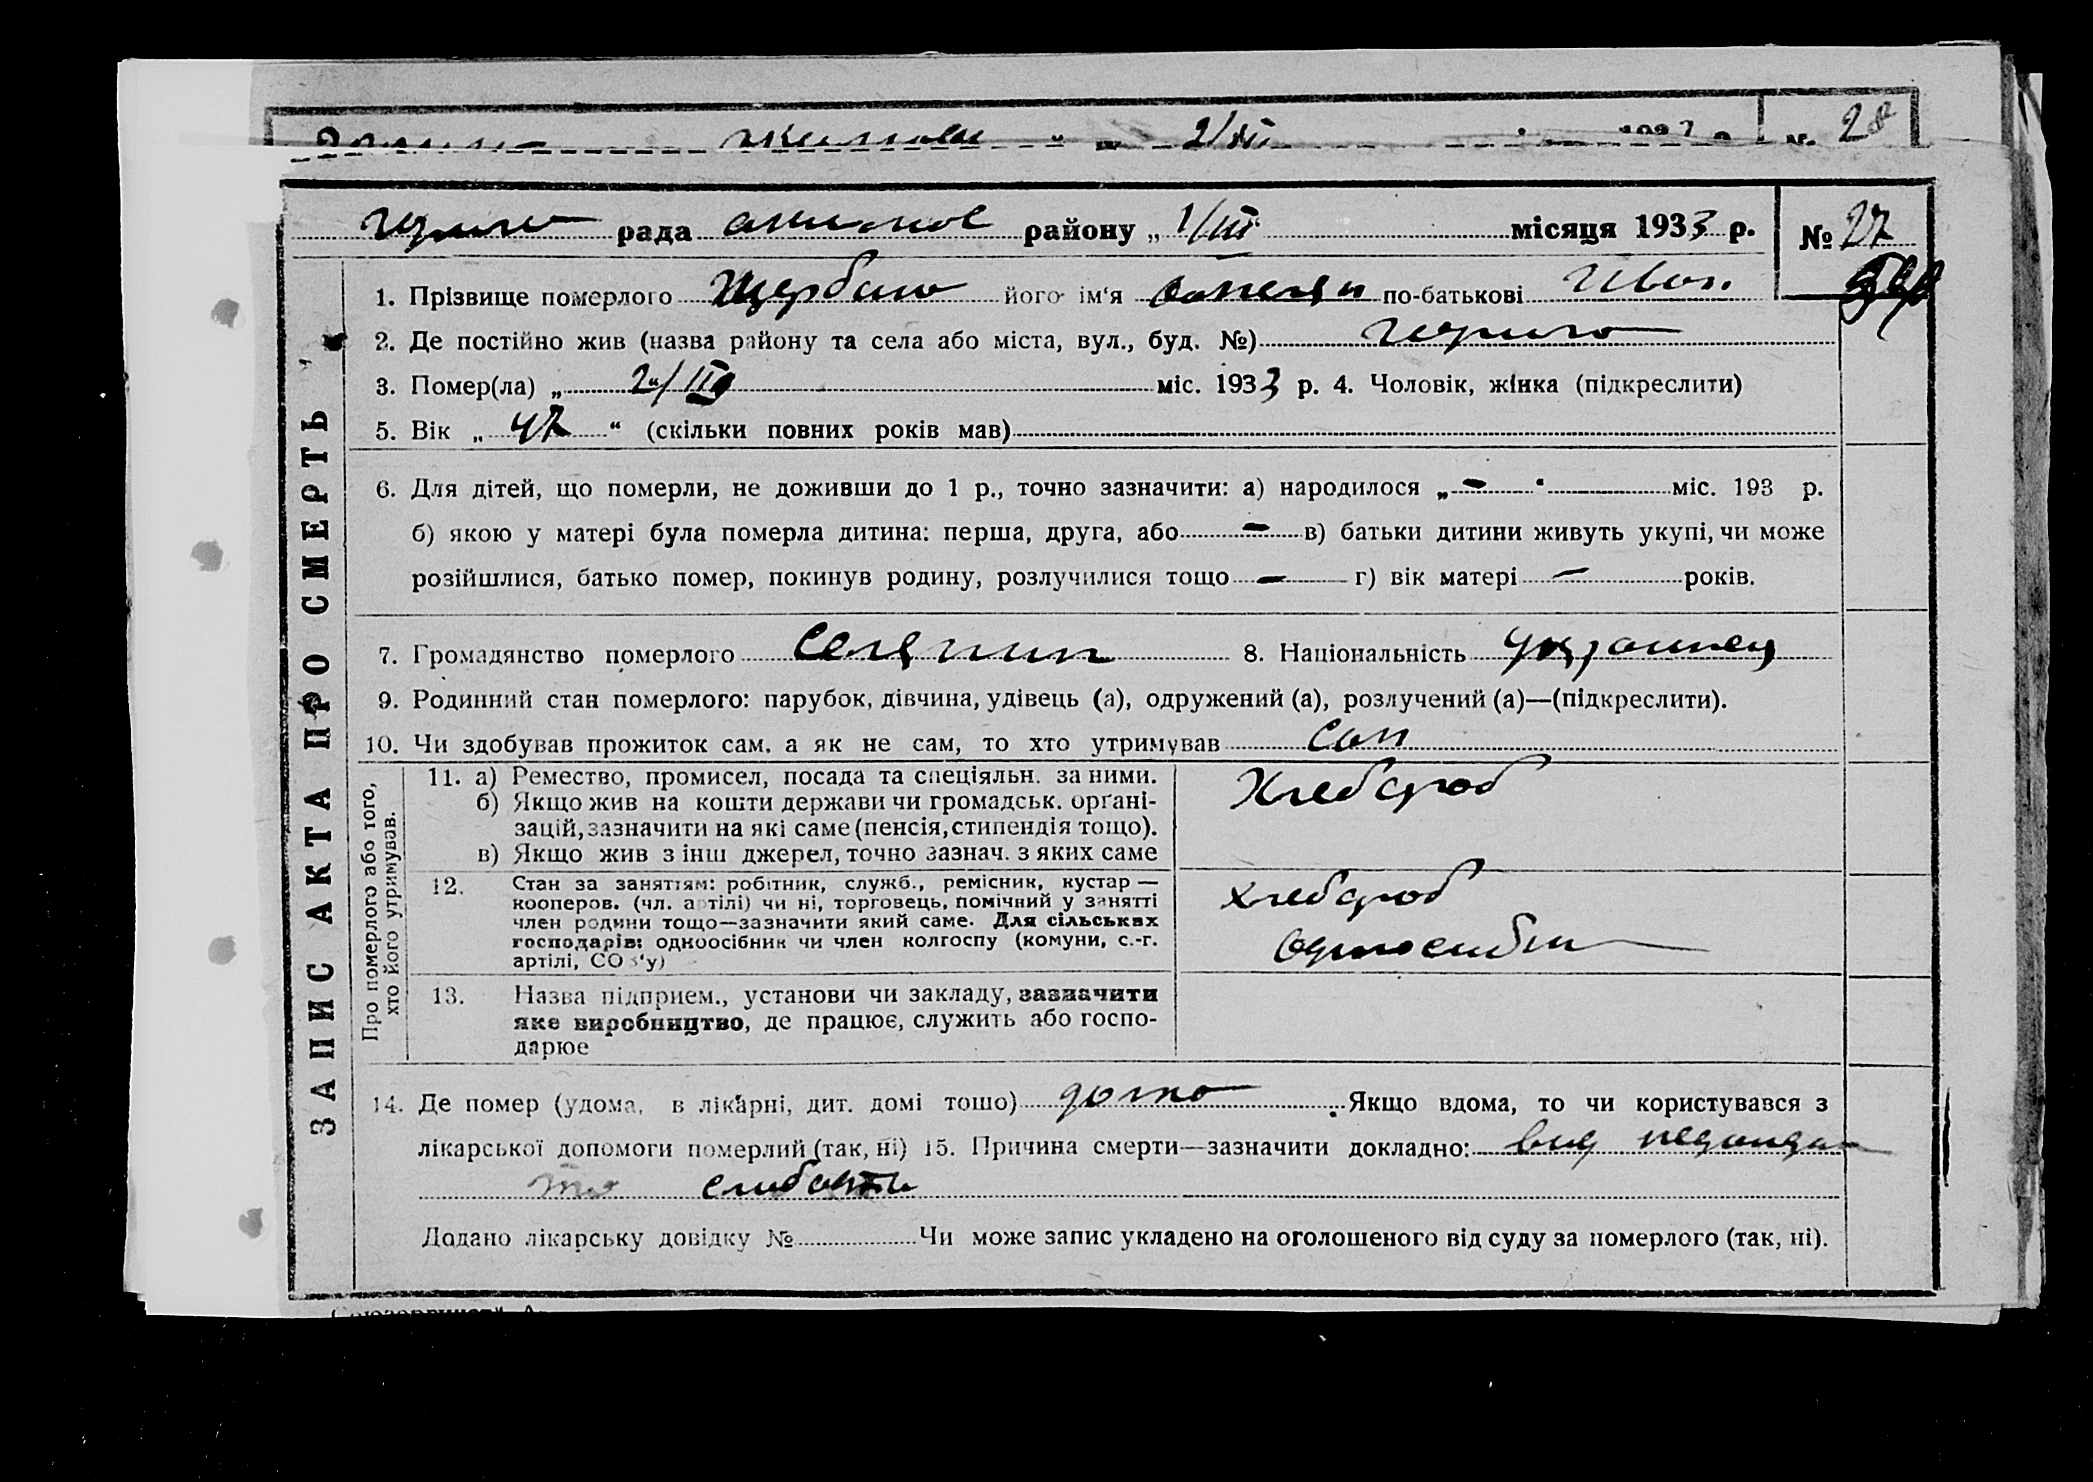 2/III № 28
рада району „ 1/III місяця 1933 р. № 27
ЗАПИС АКТА ПРО СМЕРТЬ
1. Прізвище померлого Щербань його ім'я по-батькові Иван.
2. Де постійно жив (назва району та села або міста, вул., буд. №)
3. Помер(ла) „ /III міс. 1933 р. 4. Чоловік, жінка (підкреслити)
5. Вік „ 47 “ (скільки повних років мав)
6. Для дітей, що померли, не доживши до 1 р., точно зазначити: а) народилося „ — “ міс. 193 р.
б) якою у матері була померла дитина: перша, друга, або — в) батьки дитини живуть укупі, чи може
розійшлися, батько помер, покинув родину, розлучилися тощо — г) вік матері — років.
7. Громадянство померлого селянин 8. Національність украинец
9. Родинний стан померлого: парубок, дівчина, удівець (а), одружений (а), розлучений (а)—(підкреслити).
10. Чи здобував прожиток сам, а як не сам, то хто утримував сам
Про померлого або того,
хто його утримував.
11. а) Ремество, промисел, посада та спеціяльн. за ними.
б) Якщо жив на кошти держави чи громадськ. органі-
зацій, зазначити на які саме (пенсія, стипендія тощо).
в) Якщо жив з інш джерел, точно зазнач. з яких саме
Хлебороб
12. Стан за заняттям: робітник, служб., ремісник, кустар —
кооперов. (чл. артілі) чи ні, торговець, помічний у занятті
член родини тощо—зазначити який саме. Для сільських
господарів: одноосібник чи член колгоспу (комуни, с.-г.
артілі, СОЗ'у)
хлебороб
13. Назва підприєм., установи чи закладу, зазначити
яке виробництво, де працює, служить або госпо-
дарює
14. Де помер (удома, в лікарні, дит. домі тощо) дома Якщо вдома, то чи користувався з
лікарської допомоги померлий (так, ні) 15. Причина смерти—зазначити докладно: вид
слабости
Додано лікарську довідку № Чи може запис укладено на оголошеного від суду за померлого (так, ні).